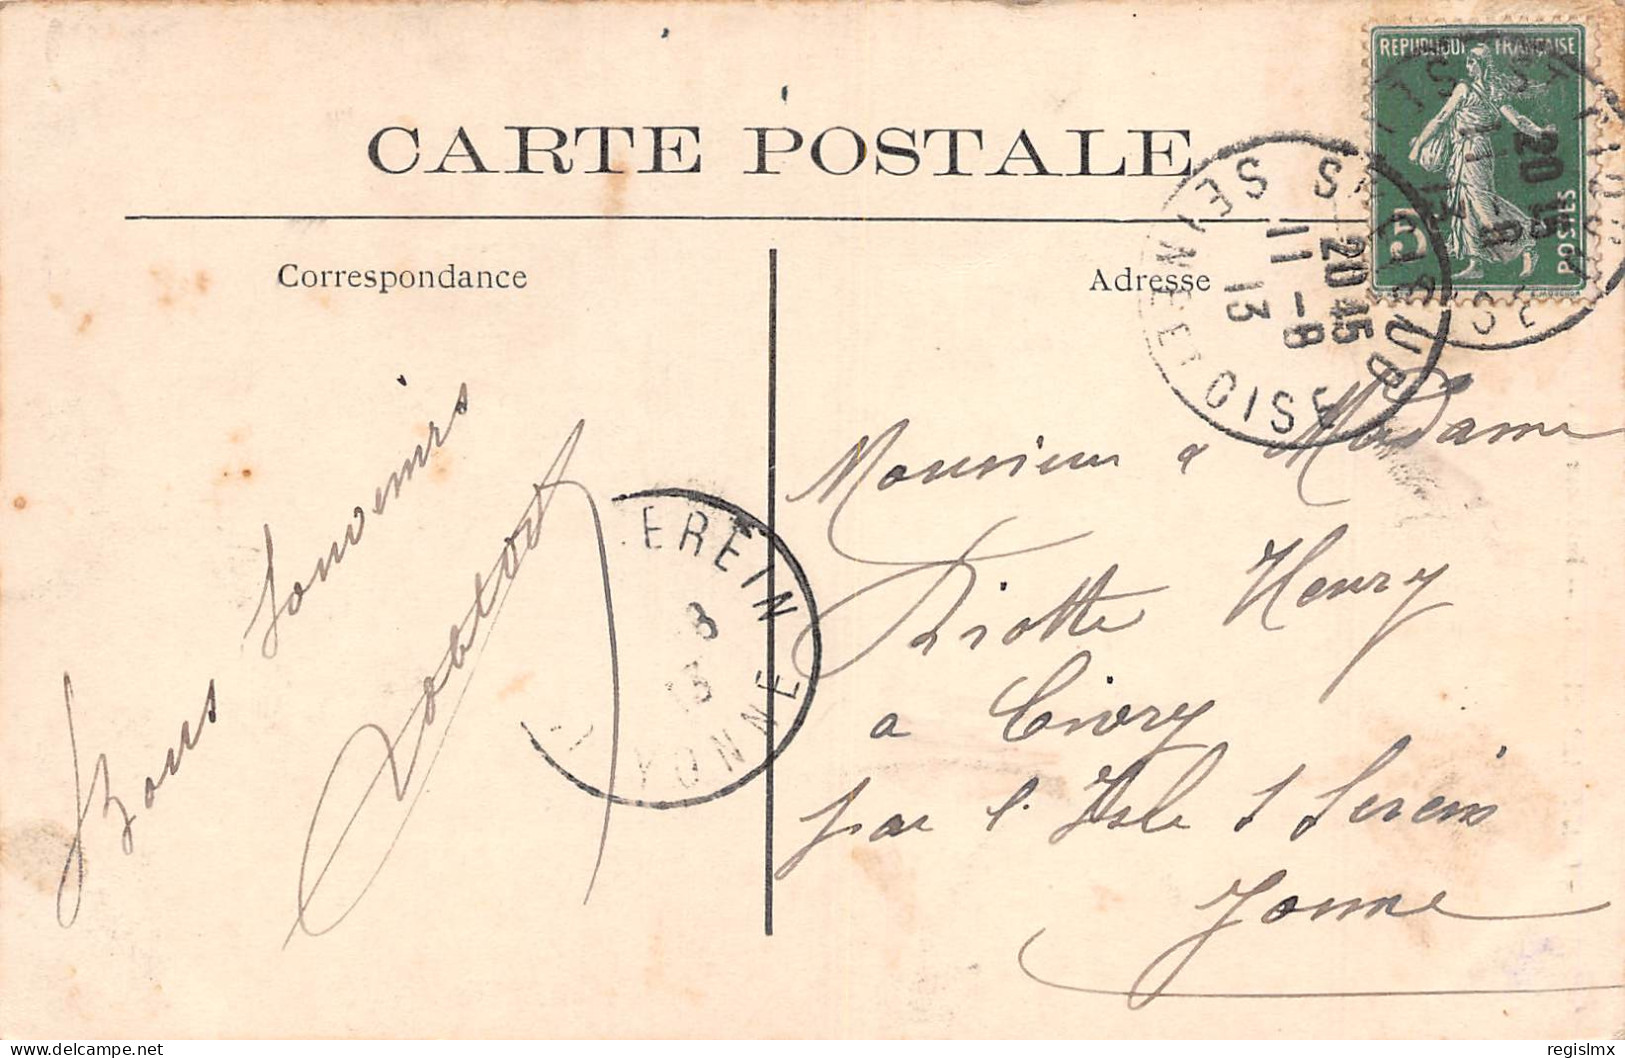 CARTE POSTALE
REPUBLIQUE FRANÇAISE
5
POSTES
SEINE ET OISE
20 45
11 - 8
13
Correspondance
Adresse
Bons Souvenirs
Monsieur & Madame
Henry
a Civry
par l'Isle s Serein
Yonne
EREIN
YONNE
8
13
delcampe.net
regislmx